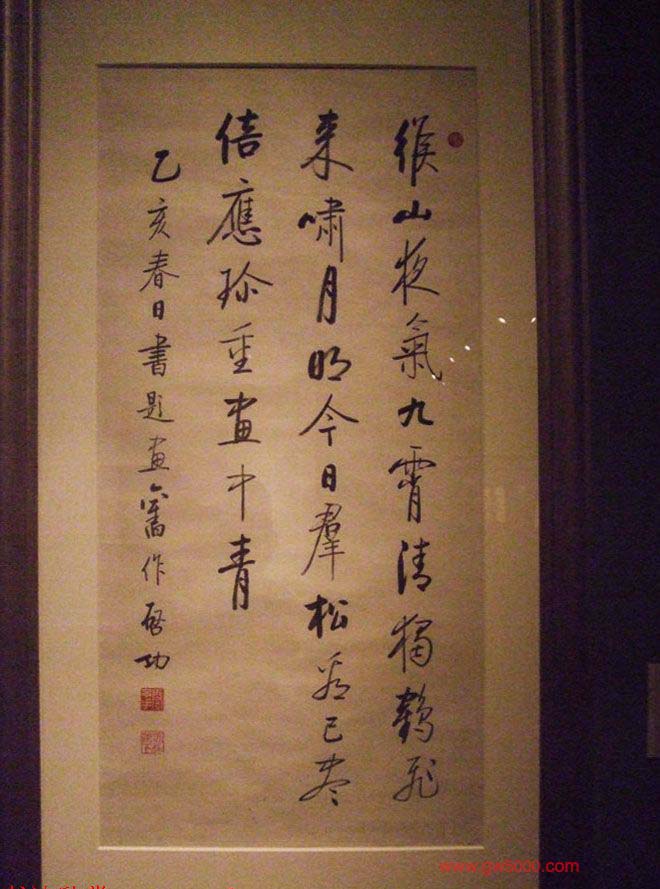 緱山夜氣九霄清獨鶴飛
来嘯月明今日羣松看已盡
倍應珍重畫中青
乙亥春日書題畫舊作啓功
www.gw8000.com